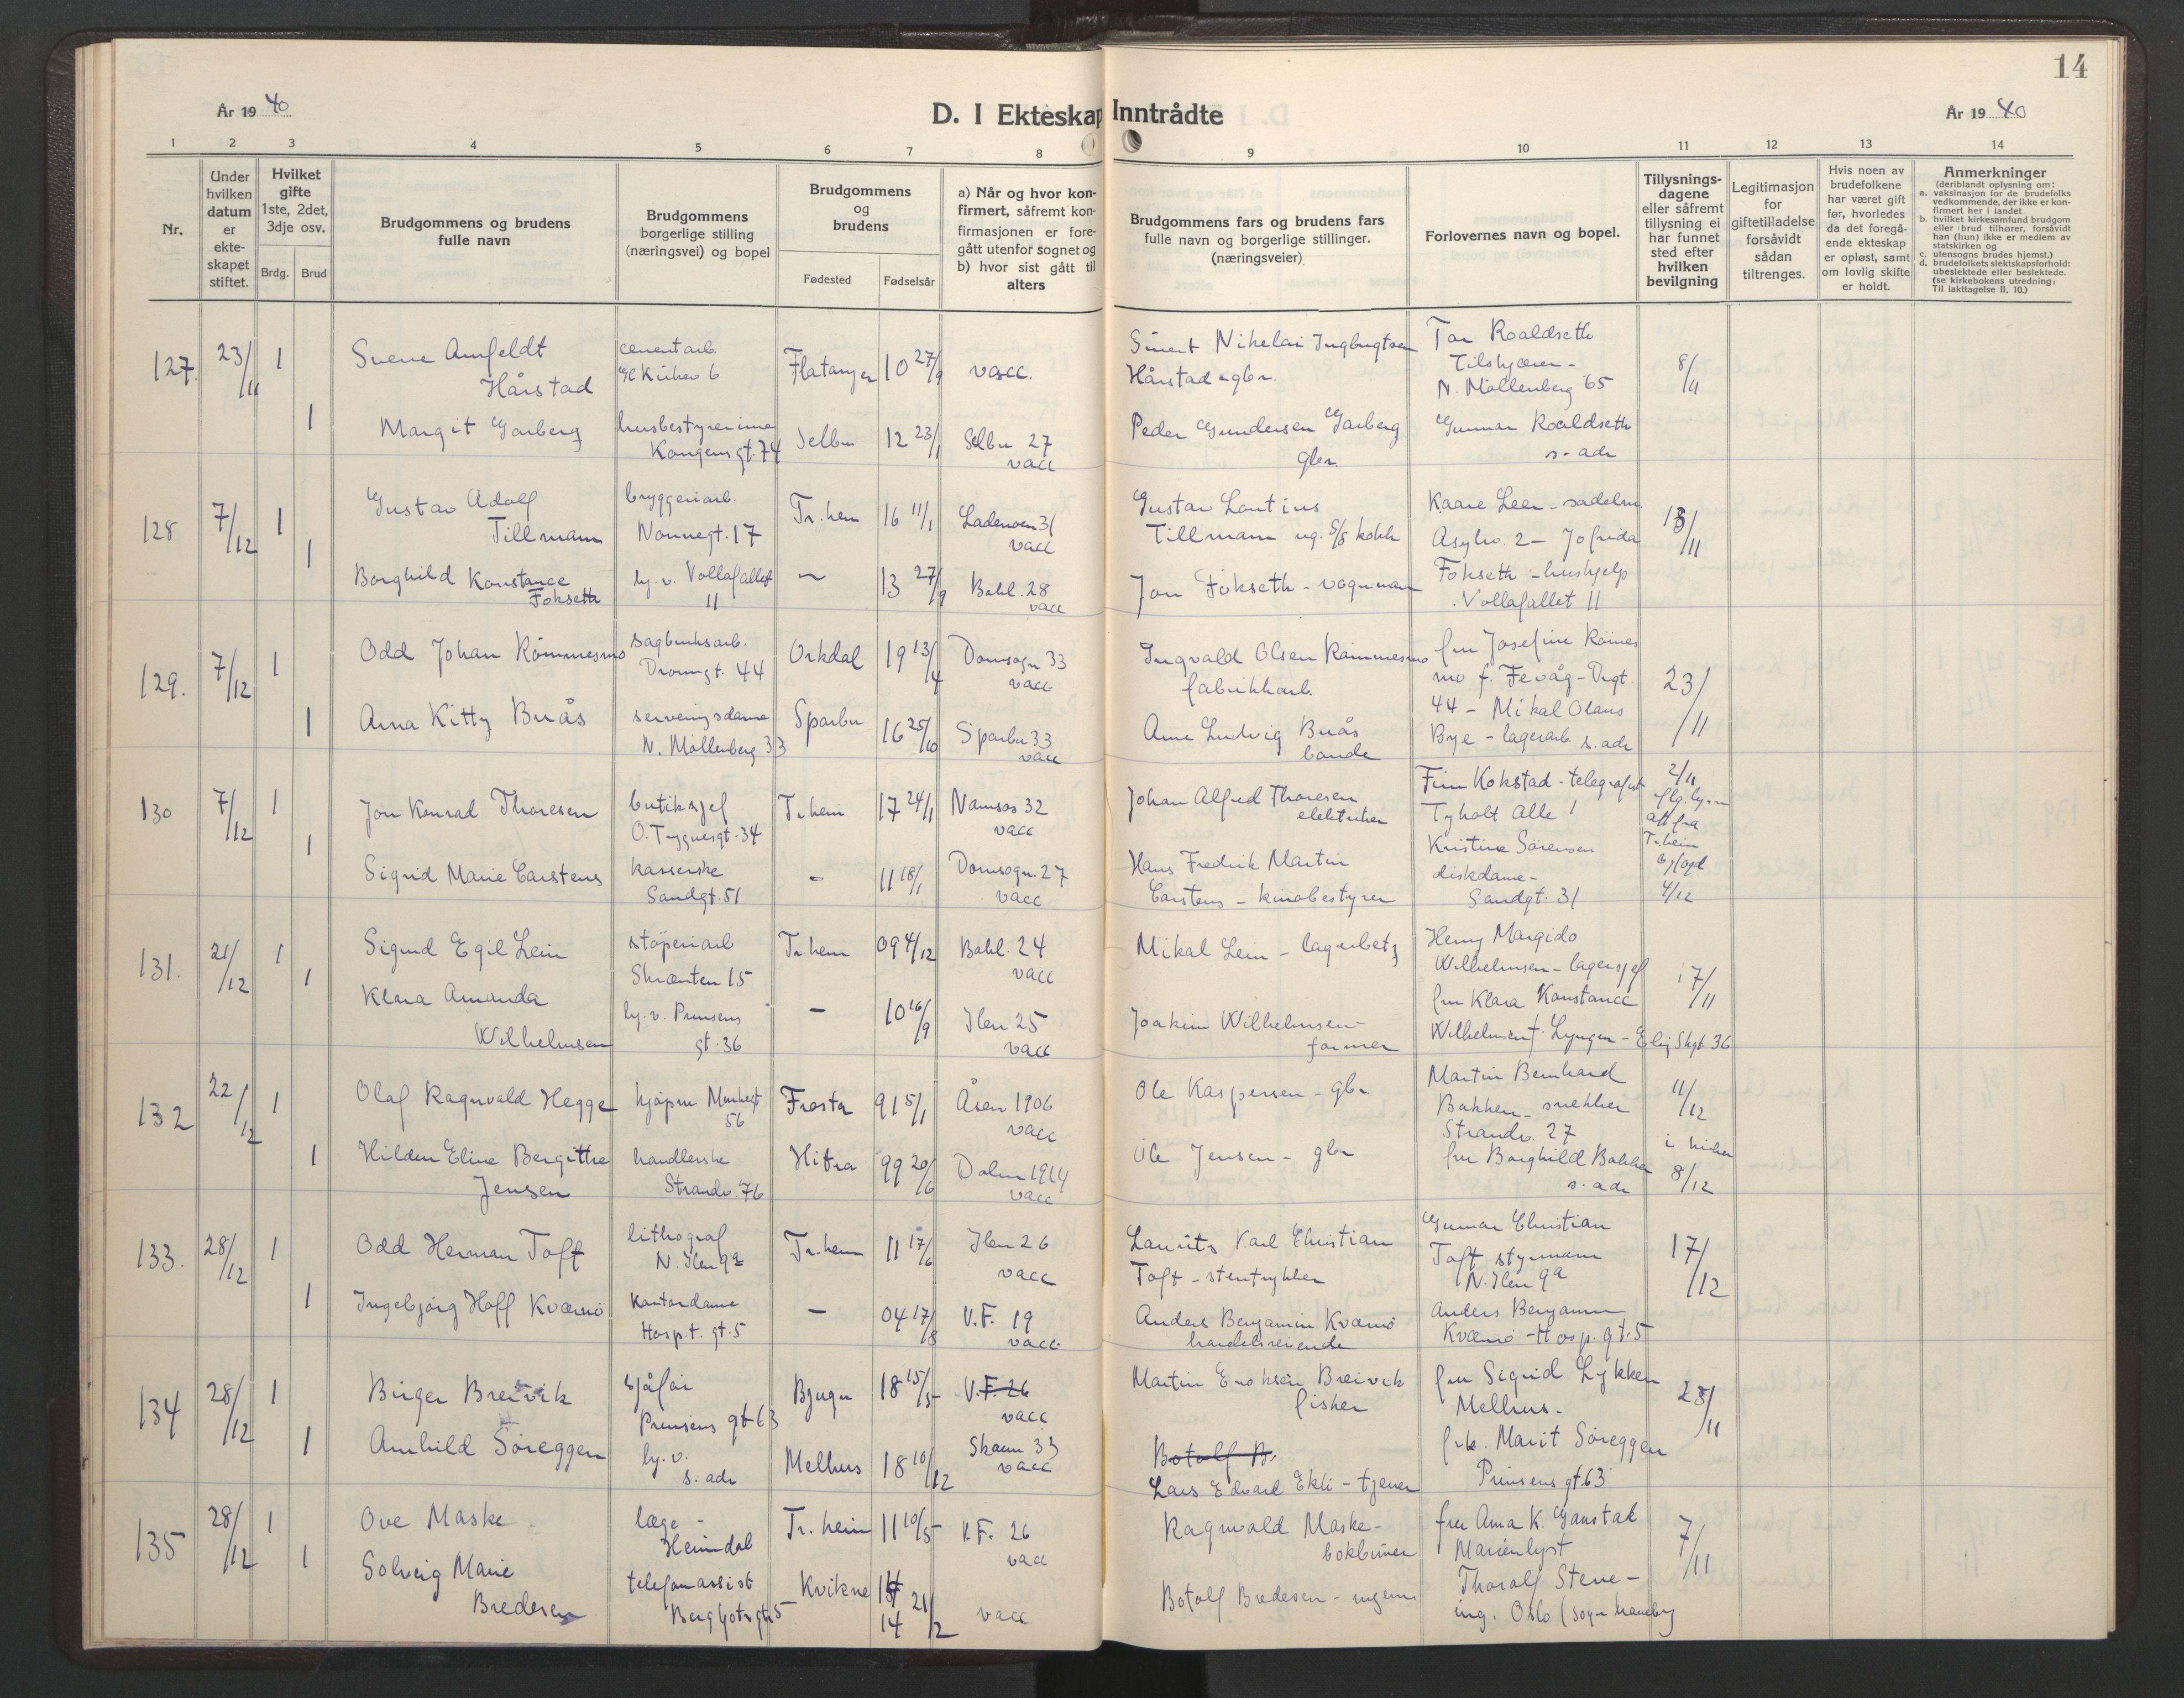 14
År 19 40
D. I Ekteskap Inntrådte
År 19 40
1 2 3 4 5 6 7 8 9 10 11 12 13 14
Nr.
Under hvilken datum er ekte-skapet stiftet.
Hvilket gifte 1ste, 2det, 3dje osv.
Brdg. Brud
Brudgommens og brudens fulle navn
Brudgommens borgerlige stilling (næringsvei) og bopel
Brudgommens og brudens
Fødested Fødselsår
a) Når og hvor kon-firmert, såfremt kon-firmasjonen er fore-gått utenfor sognet og b) hvor sist gått til alters
Brudgommens fars og brudens fars fulle navn og borgerlige stillinger. (næringsveier)
Forlovernes navn og bopel.
Tillysnings-dagene eller såfremt tillysning ei har funnet sted efter hvilken bevilgning
Legitimasjon for giftetilladelse forsåvidt sådan tiltrenges.
Hvis noen av brudefolkene har været gift før, hvorledes da det foregå-ende ekteskap er opløst, samt om lovlig skifte er holdt.
Anmerkninger
(deriblandt oplysning om:
a. vaksinasjon for de brudefolks vedkommende, der ikke er kon-firmert her i landet
b. hvilket kirkesamfund brudgom eller brud tilhører, forsåvidt han (hun) ikke er medlem av statskirken og
c. utensogns brudes hjemst.)
d. brudefolkets slektskapsforhold: ubeslektede eller beslektede.
(se kirkebokens utredning: Til iakttagelse II, 10.)
127. 23/11 1 Sverre Arnfeldt Hårstad cementarb. Flatanger 10 27/9 vacc.
Hårstad - gbr.
Tor Roaldseth
N. Möllenberg 65
8/11
1 Margit Garberg husbestyrerinne Kongensgt. 74 Selbu 12 23/1 Selbu 27 vacc
Peder Gundersen Garberg gbr.
Gunnar Roaldseth s. adr
128 7/12 1 Gustav Adolf Tillmann bryggeriarb. Nonnegt. 17 Tr.heim 16 11/1 Lademoen 31 vacc
Gustav Lontius Tillmann
Kaare Leer - sadelm
Asylv. 2 - Jofrida
/11
1 Borghild Konstance Fokseth hj. v. Vollafallet 11 - 13 27/9 Bakl. 28 vacc
Jon Fokseth - vognmann
Fokseth - hushjelp
Vollafallet 11
129. 7/12 1 Odd Johan Römmesmo sagbruksarb. Dronn.gt. 44 Orkdal 19 13/4 Domsogn 33 vacc
Ingvald Olsen Römmesmo fabrikkarb.
fru Josefine Römmes
mo f. Fevåg - Drgt.
44 - Mikal Olaus
Bye - lagerarb. s. adr
23/11
1 Anna Kitty Buås serveringsdame N. Möllenberg 33 Sparbu 16 25/10 Sparbu 33 vacc
Arne Ludvig Buås bonde
130 7/12 1 Jon Konrad Thoresen butiksjef O. Tryggvesgt. 34 Tr.heim 17 24/1 Namsos 32 vacc
Johan Alfred Thoresen elektriker
Finn Kokstad - telegrafist
Tyholt Alle 1
Kristine Sörensen
diskdame -
Sandgt. 31
2/11
att fra
Tr.heim
byfogd
4/12
1 Sigrid Marie Carstens kasserske Sandgt. 51 - 11 18/1 Domsogn. 27 vacc
Hans Fredrik Martin Carstens - kinobestyrer
131. 21/12 1 Sigurd Egil Lein støperiarb Skrænten 15 Tr.heim 09 4/12 Bakl. 24 vacc
Mikal Lein - lagerbetj
Henry Margido
Wilhelmsen - lagersjef
fru Klara Konstance
Wilhelmsen f. Lyngen
17/11
1 Klara Amanda Wilhelmsen hj. v. Prinsens gt. 36 - 10 16/9 Ilen 25 vacc
Joakim Wilhelmsen - former
132 22/12 1 Olaf Ragnvald Hegge kjøpm Munkegt 56 Frosta 91 5/1 Åsen 1906 vacc
Ole Kaspersen - gbr
Martin Bernhard
Bakken - snekker
Strandv. 27
fru Borghild Bakken
s. adr
11/12
8/12
1 Hilden Eline Bergitthe Jensen handlerske Strandv. 76 Hitra 99 20/6 Dolm 1914 vacc
Ole Jensen - gbr
133. 28/12 1 Odd Herman Toft lithograf N. Ilen 9a Tr.heim 11 17/6 Ilen 26 vacc
Laurits Karl Christian Toft - stentrykker
Gunnar Christian
Toft styrmann
N. Ilen 9a
17/12
1 Ingebjörg Hoff Kværnö Kontordame Hosp.t. gt. 5 - 04 17/8 V.F. 19 vacc
Anders Benjamin Kværnö handelsreisende
Anders Benjamin
Kværnö - Hosp. gt. 5
134 28/12 1 Birger Breivik sjåfør Prinsens gt 63 Bjugn 18 15/5 V.F. 26 vacc
Martin Enoksen Breivik fisker
fru Sigrid Lykken
Melhus -
frk. Marit Söreggen
Prinsens gt 63
/11
1 Arnhild Söreggen hj. v. s. adr Melhus 18 10/12 Skaun 33 vacc
Botolf B.
Lars Edvard Ekli - tjener
135 28/12 1 Ove Maske læge - Heimdal Tr.heim 11 10/5 V.F. 26 vacc
Ragnvald Maske - bokbinner
fru Anna K. Gaustad
Marienlyst
Thoralf Stene -
ing. Oslo
7/11
1 Solveig Marie Bredesen telefonassist Bergljotsgt 5 Kvikne 14 21/2 vacc
Botolf Bredesen - ingeniør